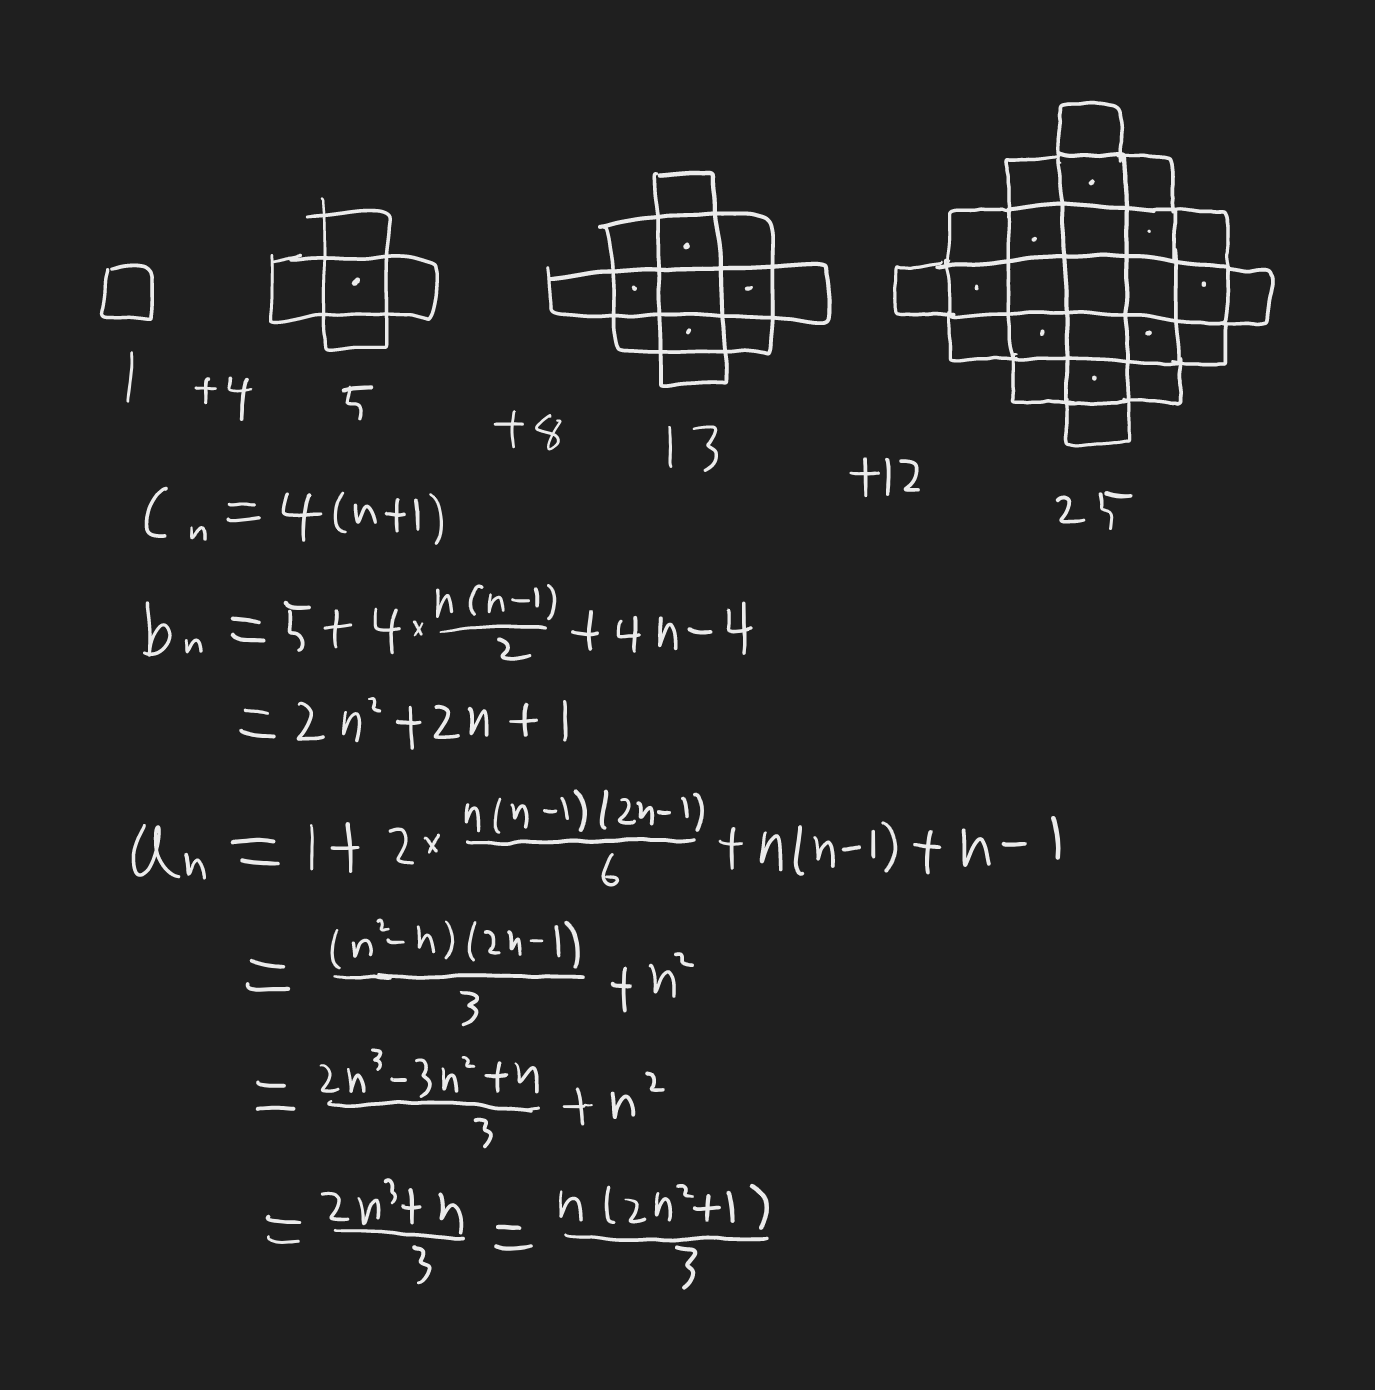 1 +4 5 +8 13 +12 25
Cₙ = 4(n+1)
bₙ = 5 + 4 × n(n-1)/2 + 4n - 4
= 2n² + 2n + 1
aₙ = 1 + 2 × n(n-1)(2n-1)/6 + n(n-1) + n - 1
= (n²-n)(2n-1)/3 + n²
= 2n³-3n²+n/3 + n²
= 2n³+n/3 = n(2n²+1)/3